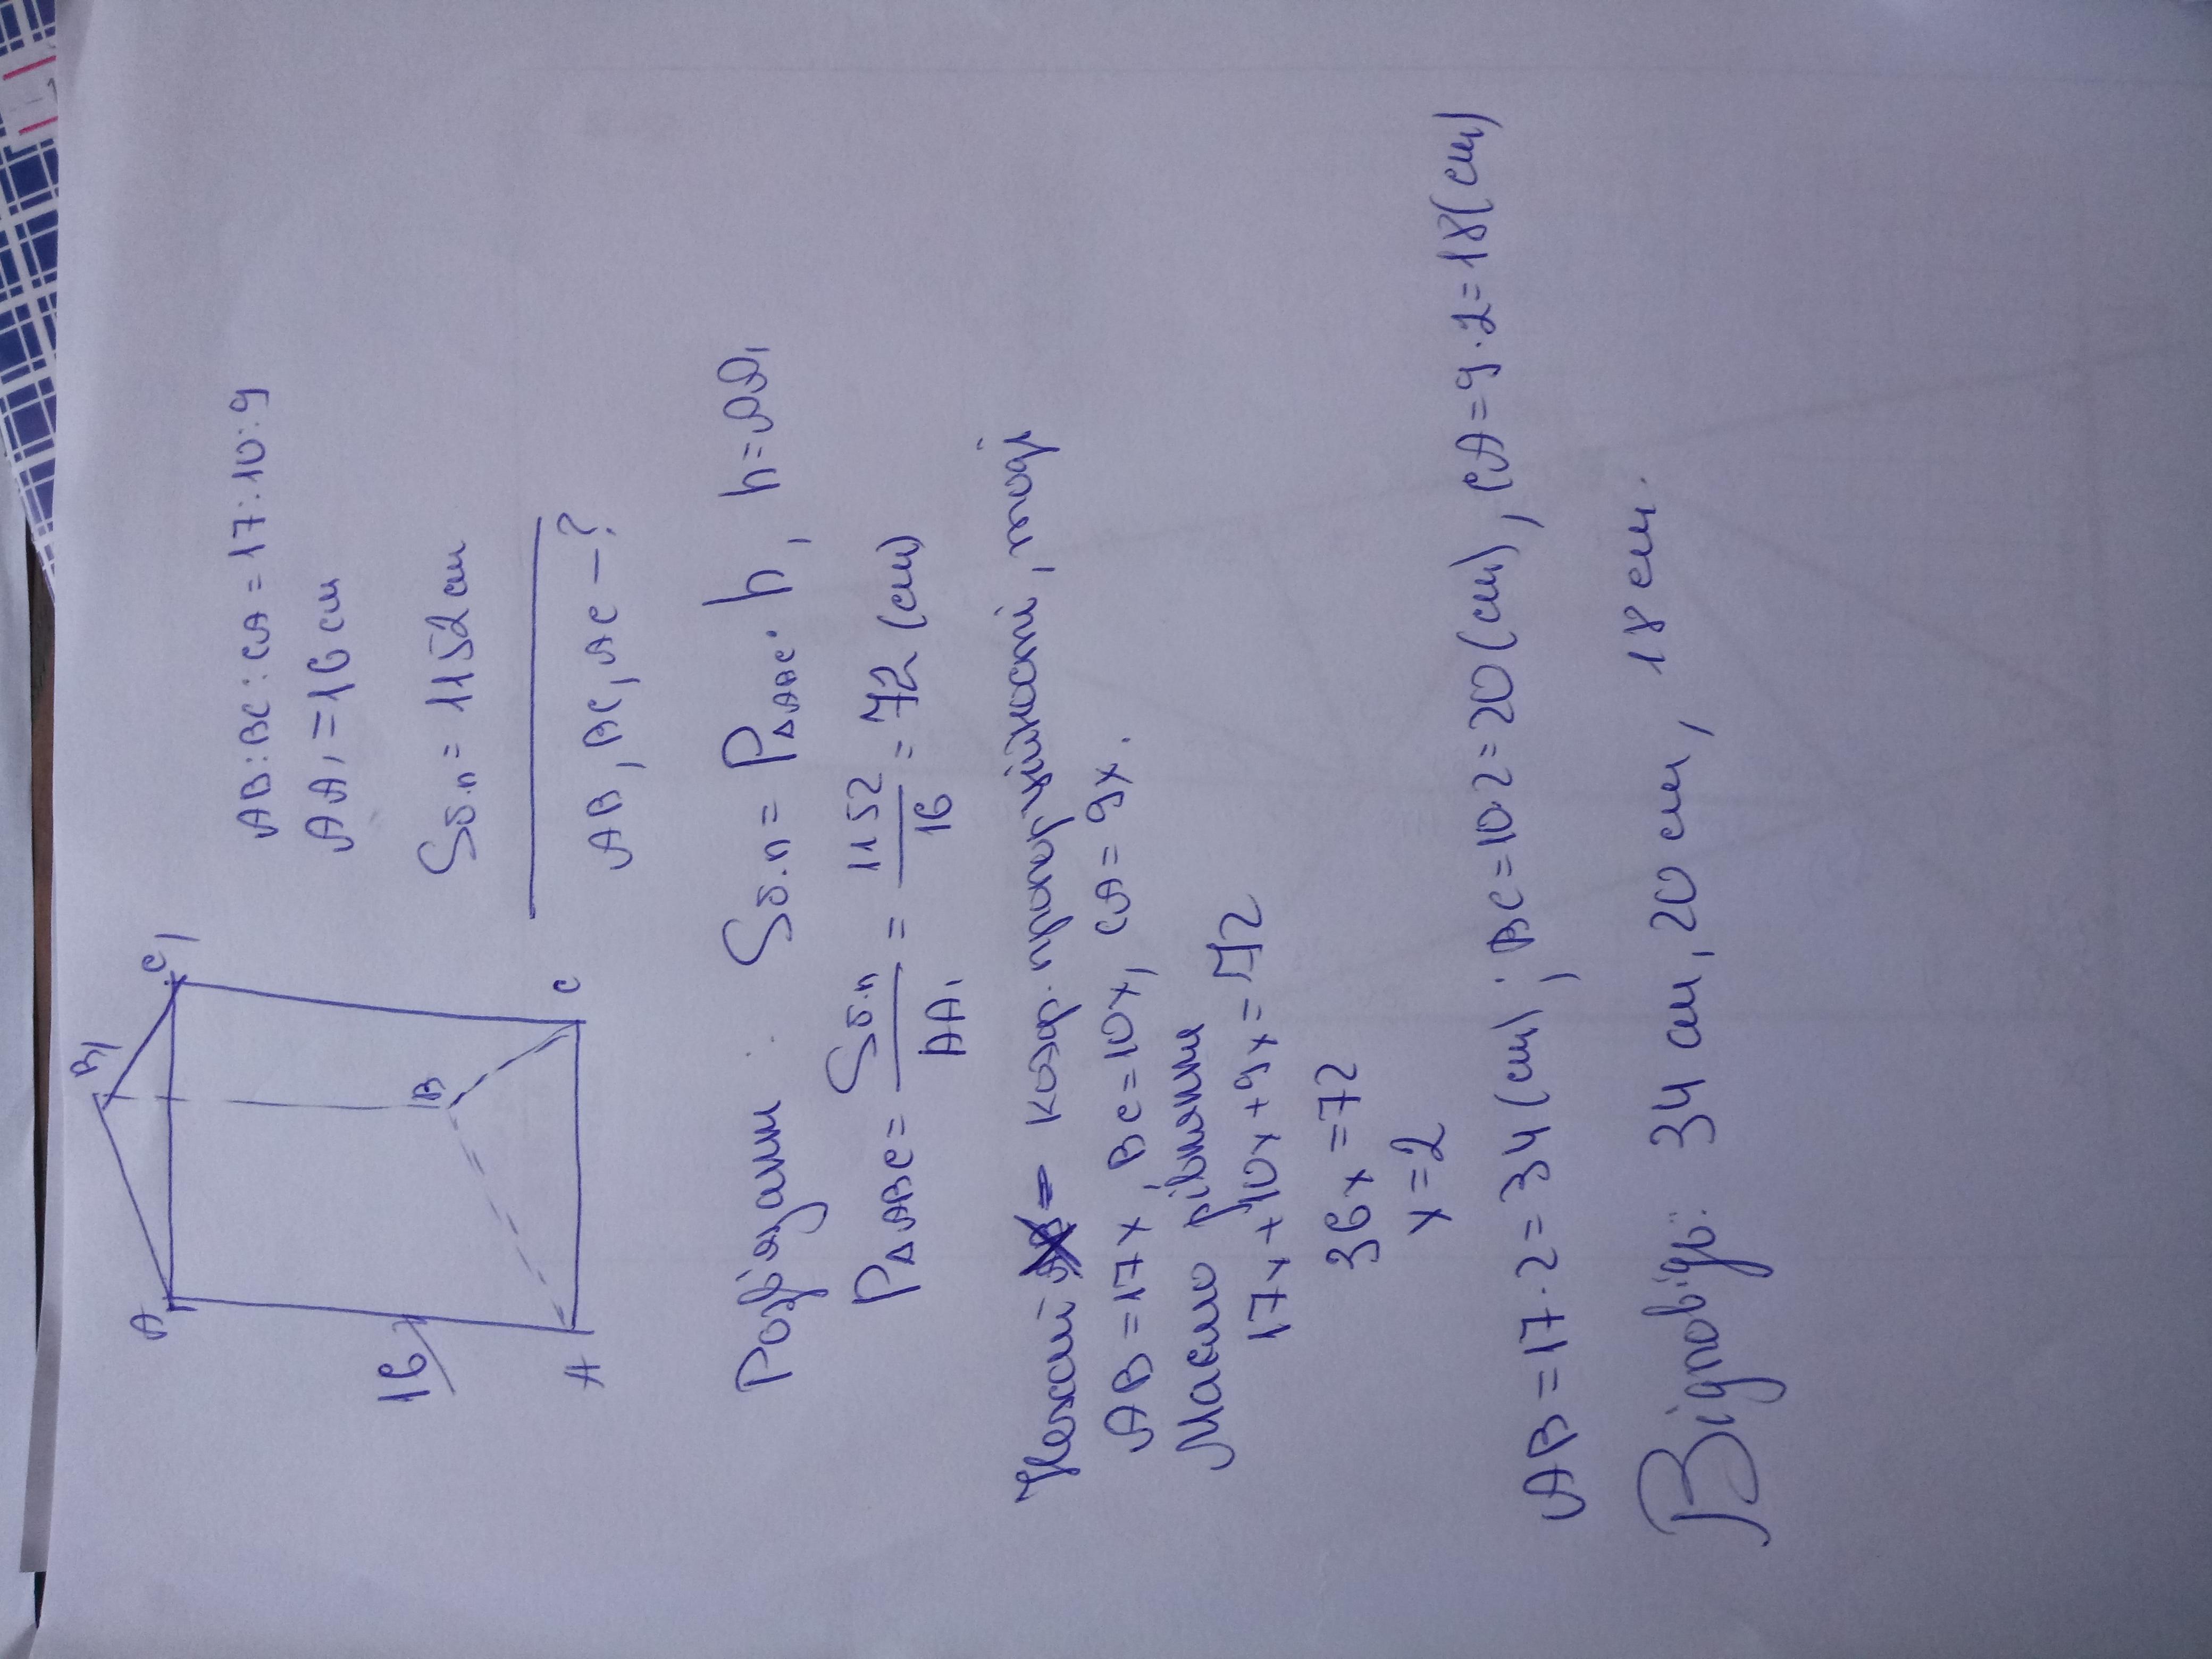 A B1 C1
16
A B C
AB:BC:CA = 17:10:9
AA1 = 16 см
Sб.п = 1152 см
AB, BC, AC – ?
Розв'язання Sб.п = P△ABC · h, h = AA1
P△ABC = Sб.п / AA1 = 1152 / 16 = 72 (см)
Нехай – коеф. пропорційності, тоді
AB = 17x, BC = 10x, CA = 9x.
Маємо рівняння
17x + 10x + 9x = 72
36x = 72
x = 2
AB = 17·2 = 34 (см); BC = 10·2 = 20 (см), CA = 9·2 = 18 (см)
Відповідь: 34 см, 20 см, 18 см.